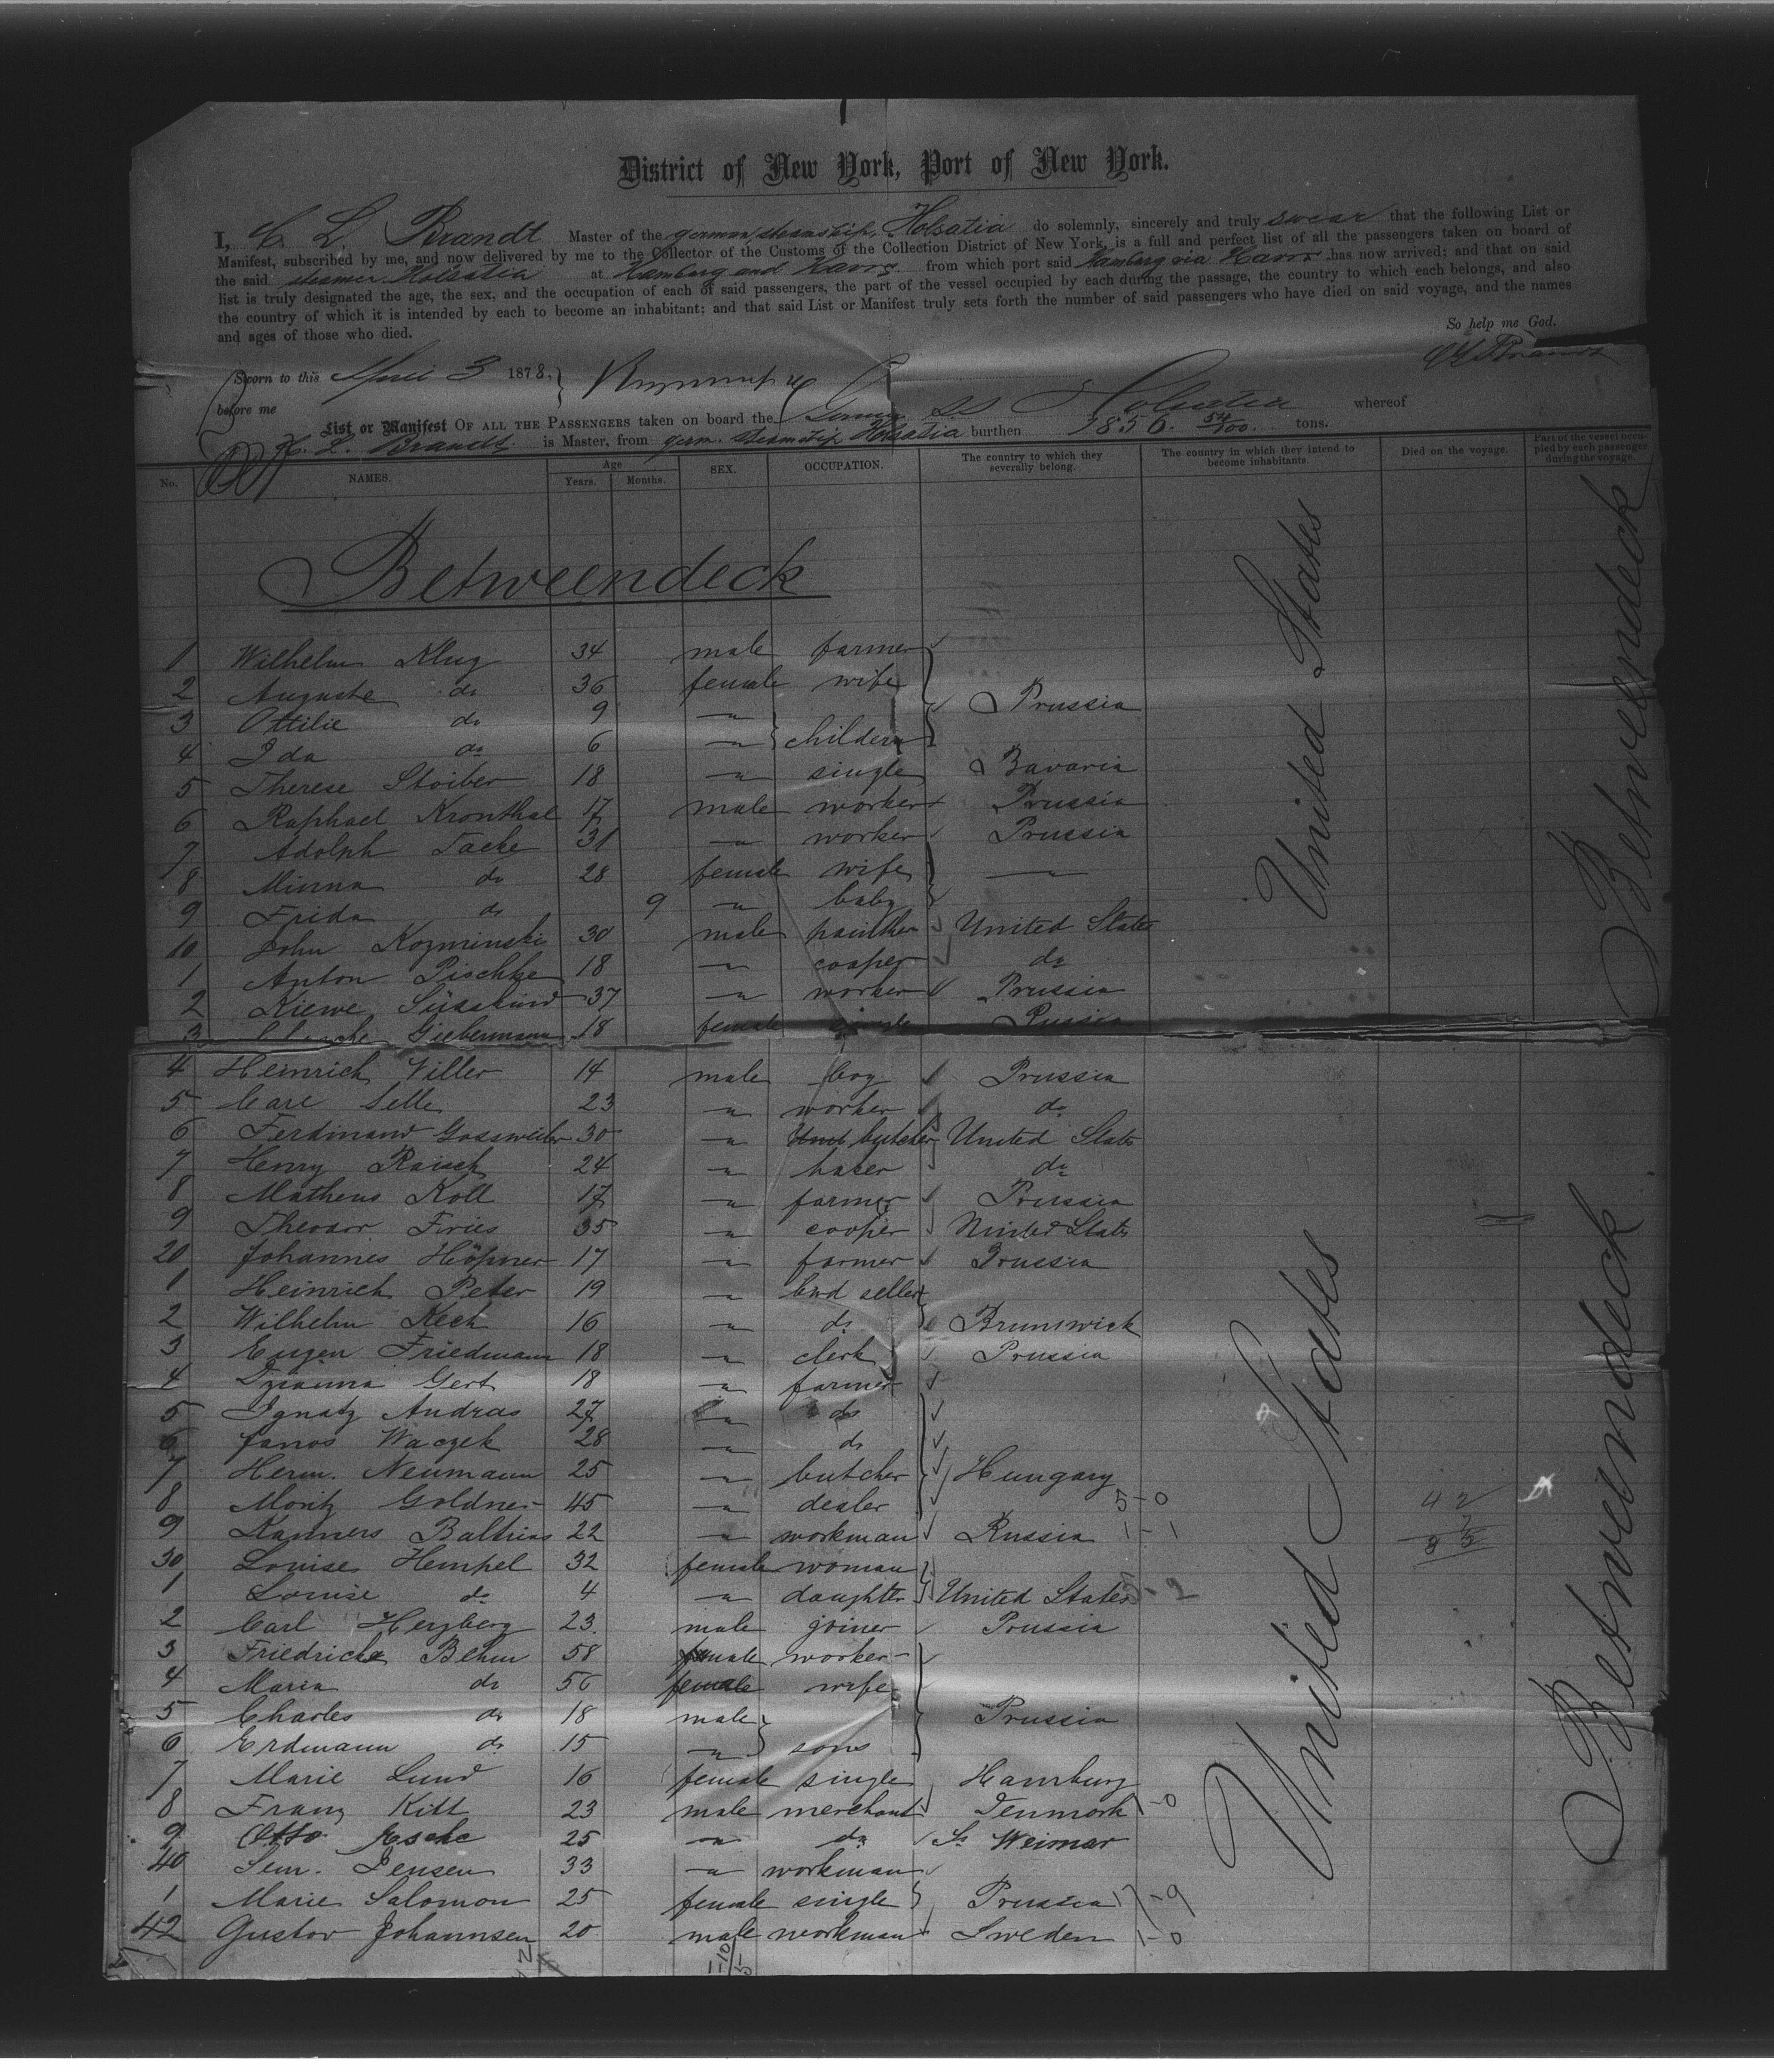 District of New York, Port of New York.
I, C. L. Brandt Master of the german steamship Holsatia do solemnly, sincerely and truly swear that the following List or
Manifest, subscribed by me, and now delivered by me to the Collector of the Customs of the Collection District of New York, is a full and perfect list of all the passengers taken on board of
the said steamer Holsatia at Hamburg and Havre from which port said Hamburg via Havre has now arrived; and that on said
list is truly designated the age, the sex, and the occupation of each of said passengers, the part of the vessel occupied by each during the passage, the country to which each belongs, and also
the country of which it is intended by each to become an inhabitant; and that said List or Manifest truly sets forth the number of said passengers who have died on said voyage, and the names
and ages of those who died.
So help me God.
Sworn to this April 3 1878,
before me
List or Manifest OF ALL THE PASSENGERS taken on board the German SS Holsatia whereof
C. L. Brandt is Master, from germ. steamship Holsatia burthen 2856. 54/100. tons.
No. NAMES. Age Years. Months. SEX. OCCUPATION. The country to which they severally belong. The country in which they intend to become inhabitants. Died on the voyage. Part of the vessel occupied by each passenger during the voyage.
Betweendeck
United States
Betweendeck
1 Wilhelm Klug 34 male farmer
2 Auguste do 36 female wife
3 Ottilie do 9 " Prussia
4 Ida do 6 " childern
5 Therese Stoiber 18 " single Bavaria
6 Raphael Kronthal 17 male worker Prussia
7 Adolph Tacke 31 " worker Prussia
8 Minna do 28 female wife "
9 Frida do 9 " baby
10 John Kozminski 30 male painther United States
1 Anton Pischke 18 " cooper do
2 Kiewe Süsskind 37 " worker Prussia
3 Giebermann 18 female single Russia
4 Heinrich Viller 14 male boy Prussia
5 Carl Selle 23 " worker do
6 Ferdinand Gossweiler 30 " butcher United States
7 Henry Raisch 24 " baker do
8 Matheus Koll 17 " farmer Prussia
9 Theodor Fries 35 " cooper United States
20 Johannes Höpner 17 " farmer Prussia
1 Heinrich Peter 19 " bird seller
2 Wilhelm Kech 16 " do Brunswick
3 Eugen Friedmann 18 " clerk Prussia
4 Gert 18 " farmer
5 Ignatz Andras 27 " do
6 Janos Waczek 28 " do
7 Herm. Neumann 25 " butcher Hungary
8 Moritz Goldner 45 " dealer 5-0
9 Kanners Baltrias 22 " workman Russia 1-1
30 Louise Hempel 32 female woman
1 Louise do 4 " daughter United States
2 Carl Herzberg 23. male joiner Prussia
3 Friedrich Behm 58 male worker
4 Maria do 56 female wife
5 Charles do 18 male Prussia
6 Erdmann do 15 " sons
7 Marie Lund 16 female single Hamburg
8 Franz Kitt 23 male merchant Denmark 1-0
9 Otto Esche 25 " do S. Weimar
40 Sem. Jensen 33 " workman
1 Marie Salomon 25 female single Prussia 17-9
42 Gustav Johannsen 20 male workman Sweden 1-0
United States
Betweendeck
42